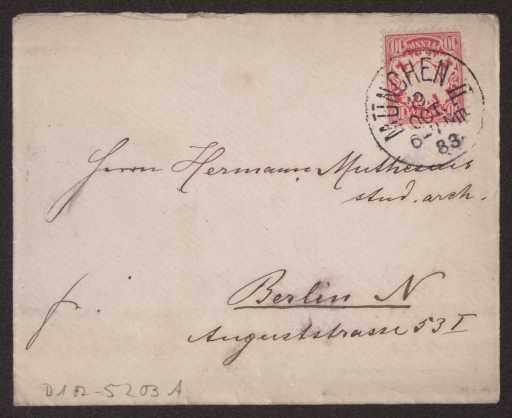 MÜNCHEN II.
83.
Herrn Hermann Muthesius
stud. arch.
Berlin N
fr.
Auguststrasse 53 I
D 102-5203 A